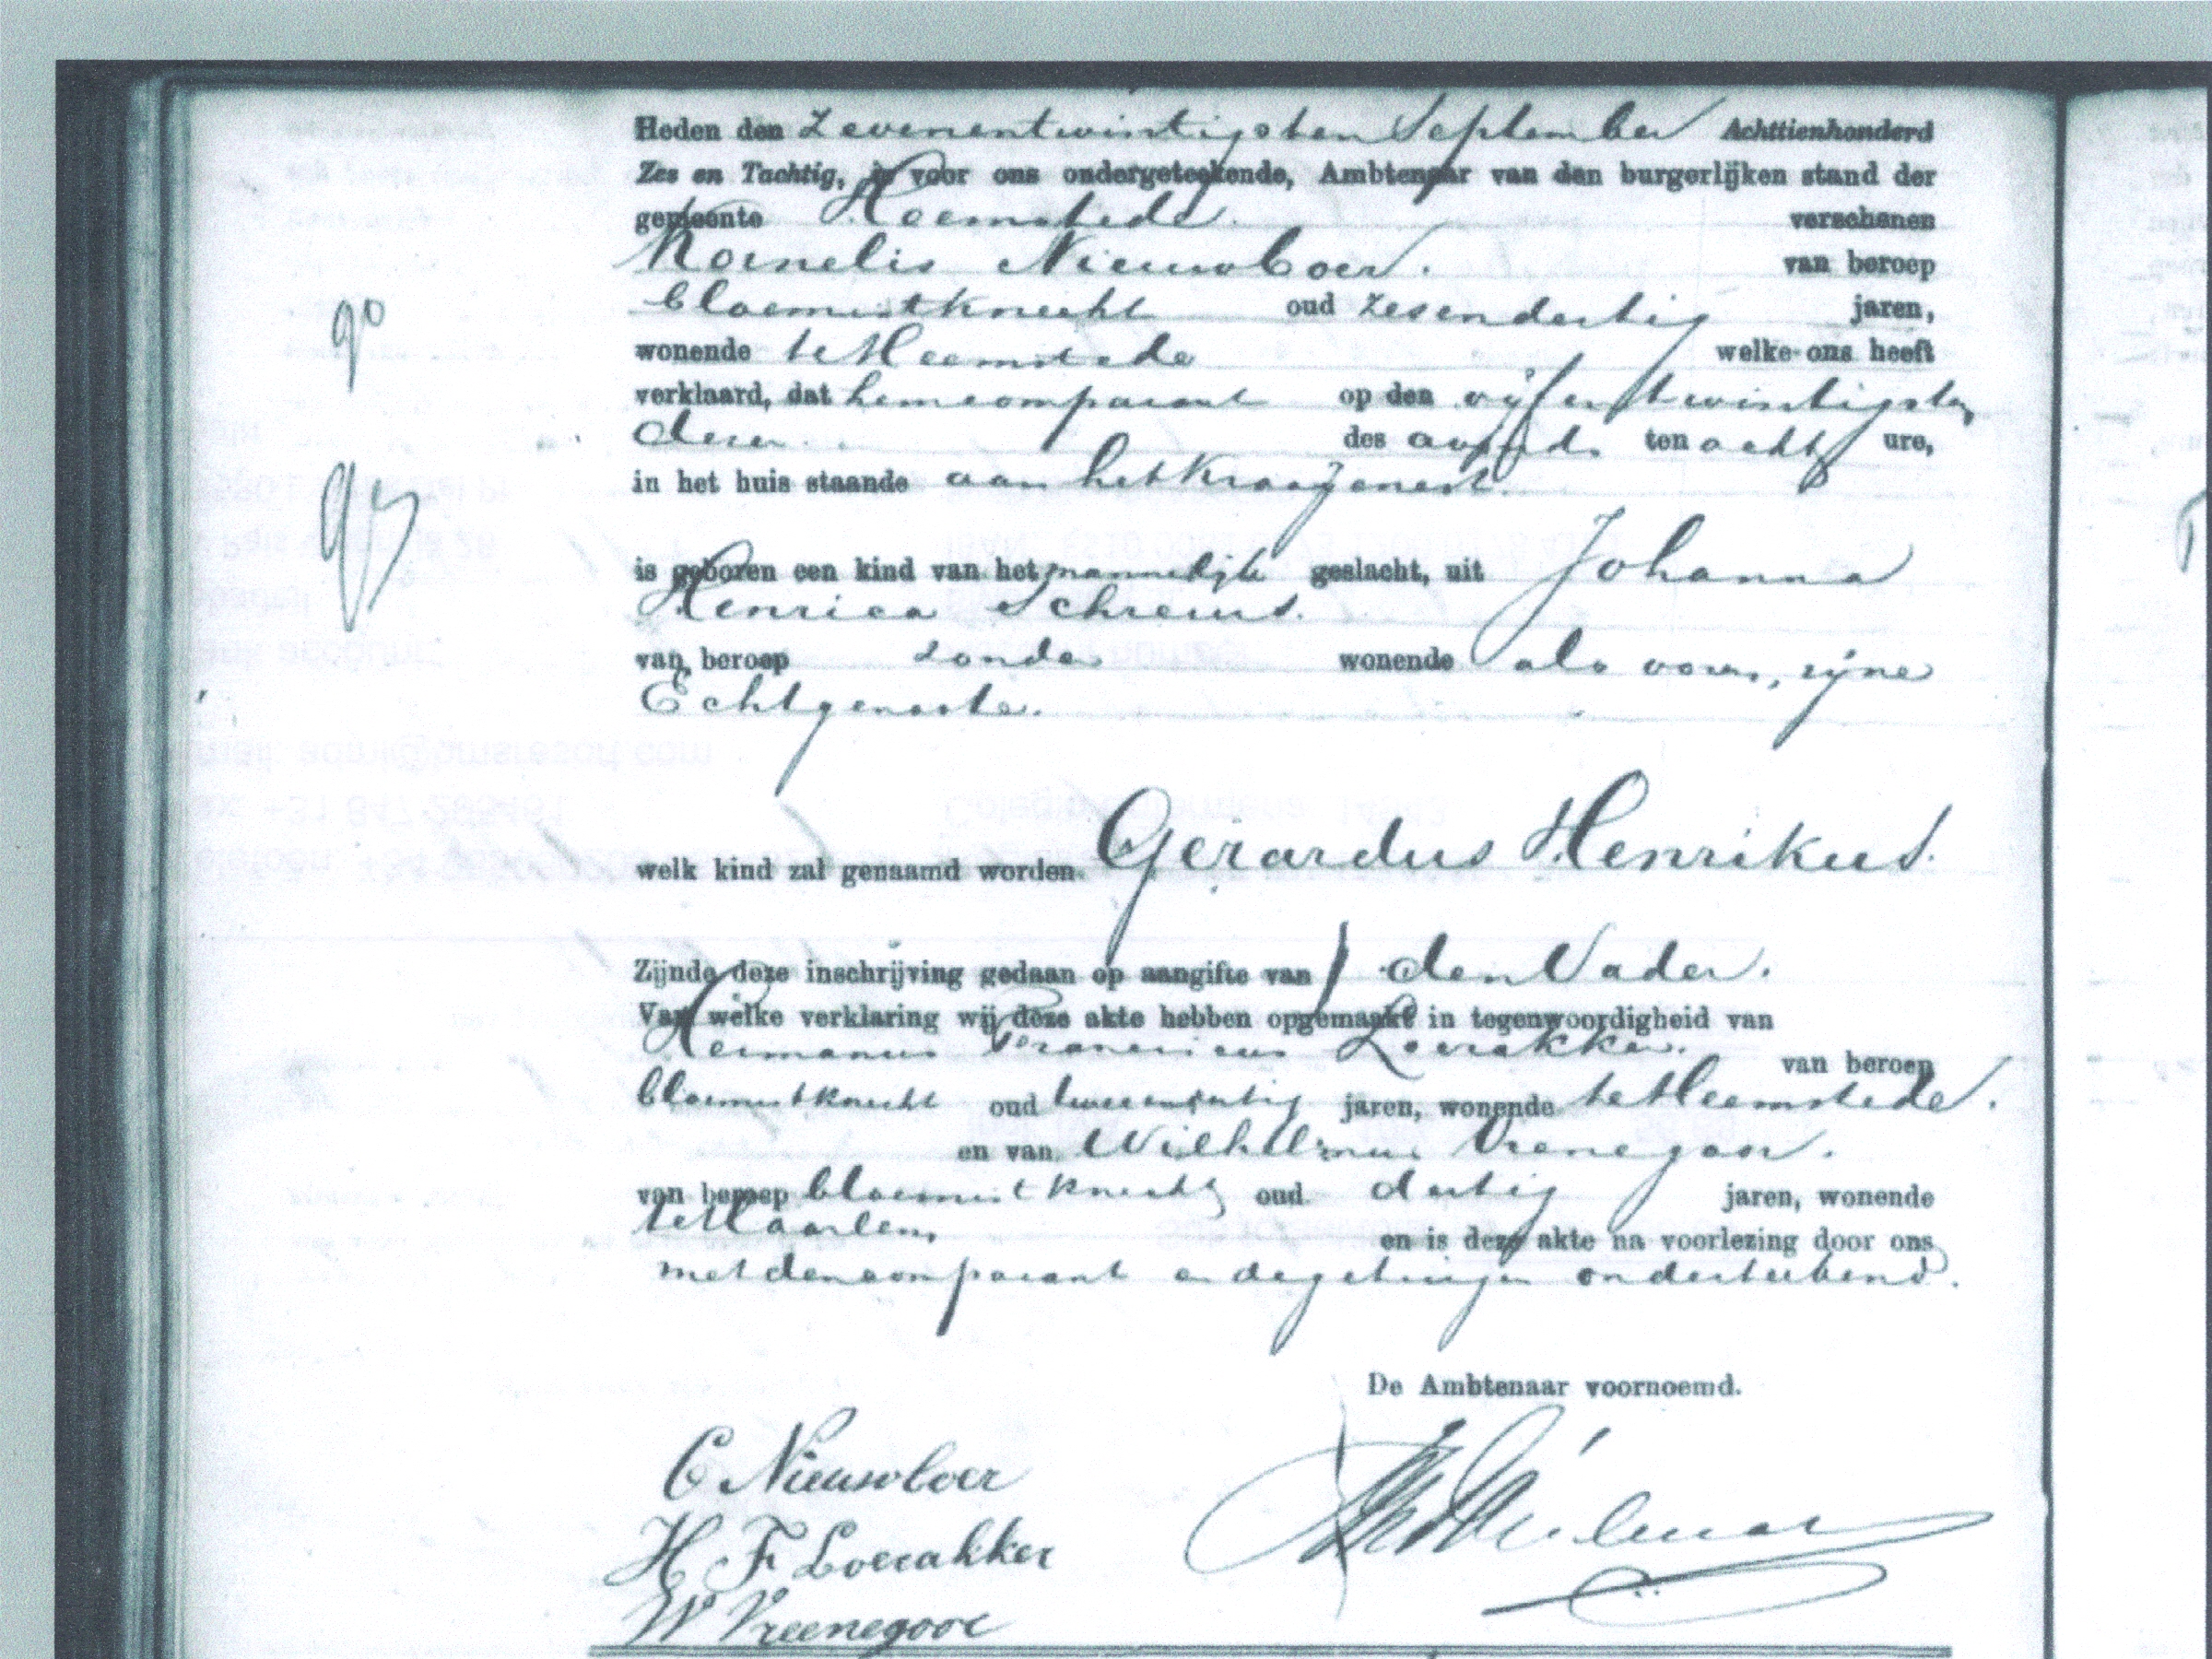 Heden den Zevenentwintigsten September Achttienhonderd
Zes en Tachtig, is voor ons ondergeteekende, Ambtenaar van den burgerlijken stand der
gemeente Heemstede. verschenen
Kornelis Nieuwboer. van beroep
bloemistknecht oud zesendertig jaren,
wonende te Heemstede welke ons heeft
verklaard, dat hem comparant op den vijfentwintigsten
dezer. des avonds ten acht ure,
in het huis staande aan het Kraayenest.
is geboren een kind van het mannelijk geslacht, uit Johanna
Henrica Schreurs.
van beroep zonder wonende als voren, zijne
Echtgenoote.
welk kind zal genaamd worden Gerardus Henrikus.
Zijnde deze inschrijving gedaan op aangifte van den Vader.
Van welke verklaring wij deze akte hebben opgemaakt in tegenwoordigheid van
Hermanus Franciscus Loerakker. van beroep
bloemistknecht oud jaren, wonende te Heemstede.
en van Wilhelmus Vreenegoor.
van beroep bloemistknecht oud dertig jaren, wonende
te Haarlem, en is deze akte na voorlezing door ons
met den comparant en de getuigen onderteekend.
De Ambtenaar voornoemd.
C Nieuwboer
H F Loerakker
W Vreenegoor
9º
93